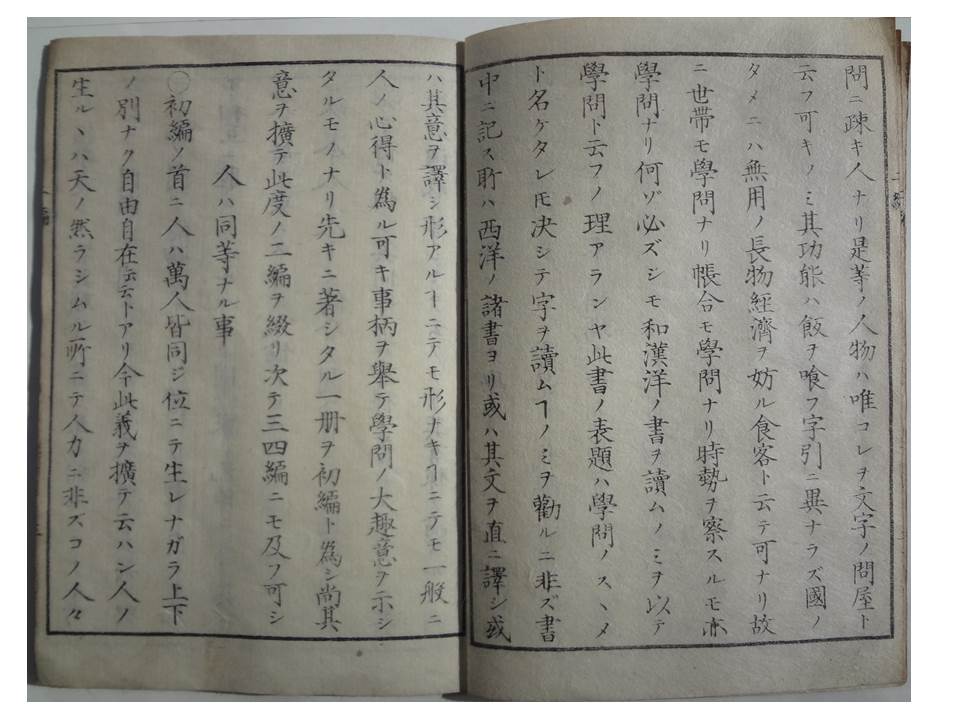 問ニ疎キ人ナリ是等ノ人物ハ唯コレヲ文字ノ問屋ト
云フ可キノミ其功能ハ飯ヲ喰フ字引ニ異ナラズ國ノ
タメニハ無用ノ長物經濟ヲ妨ル食客ト云テ可ナリ故
ニ世帯モ學問ナリ帳合モ學問ナリ時勢ヲ察スルモ亦
學問ナリ何ゾ必ズシモ和漢洋ノ書ヲ讀ムノミヲ以テ
學問ト云フノ理アランヤ此書ノ表題ハ學問ノスヽメ
ト名ケタレ𪜈决シテ字ヲ讀ムヿノミヲ勸ルニ非ズ書
中ニ記ス所ハ西洋ノ諸書ヨリ或ハ其文ヲ直ニ譯シ或
ハ其意ヲ譯シ形アルヿニテモ形ナキヿニテモ一般ニ
人ノ心得ト爲ル可キ事柄ヲ舉テ學問ノ大趣意ヲ示シ
タルモノナリ先キニ著シタル一册ヲ初編ト爲シ尚其
意ヲ擴テ此度ノ二編ヲ綴リ次テ三四編ニモ及フ可シ
人ハ同等ナル事
〇初編ノ首ニ人ハ萬人皆同ジ位ニテ生レナガラ上下
ノ別ナク自由自在云云トアリ今此義ヲ擴テ云ハン人ノ
生ルヽハ天ノ然ラシムル所ニテ人力ニ非ズコノ人々